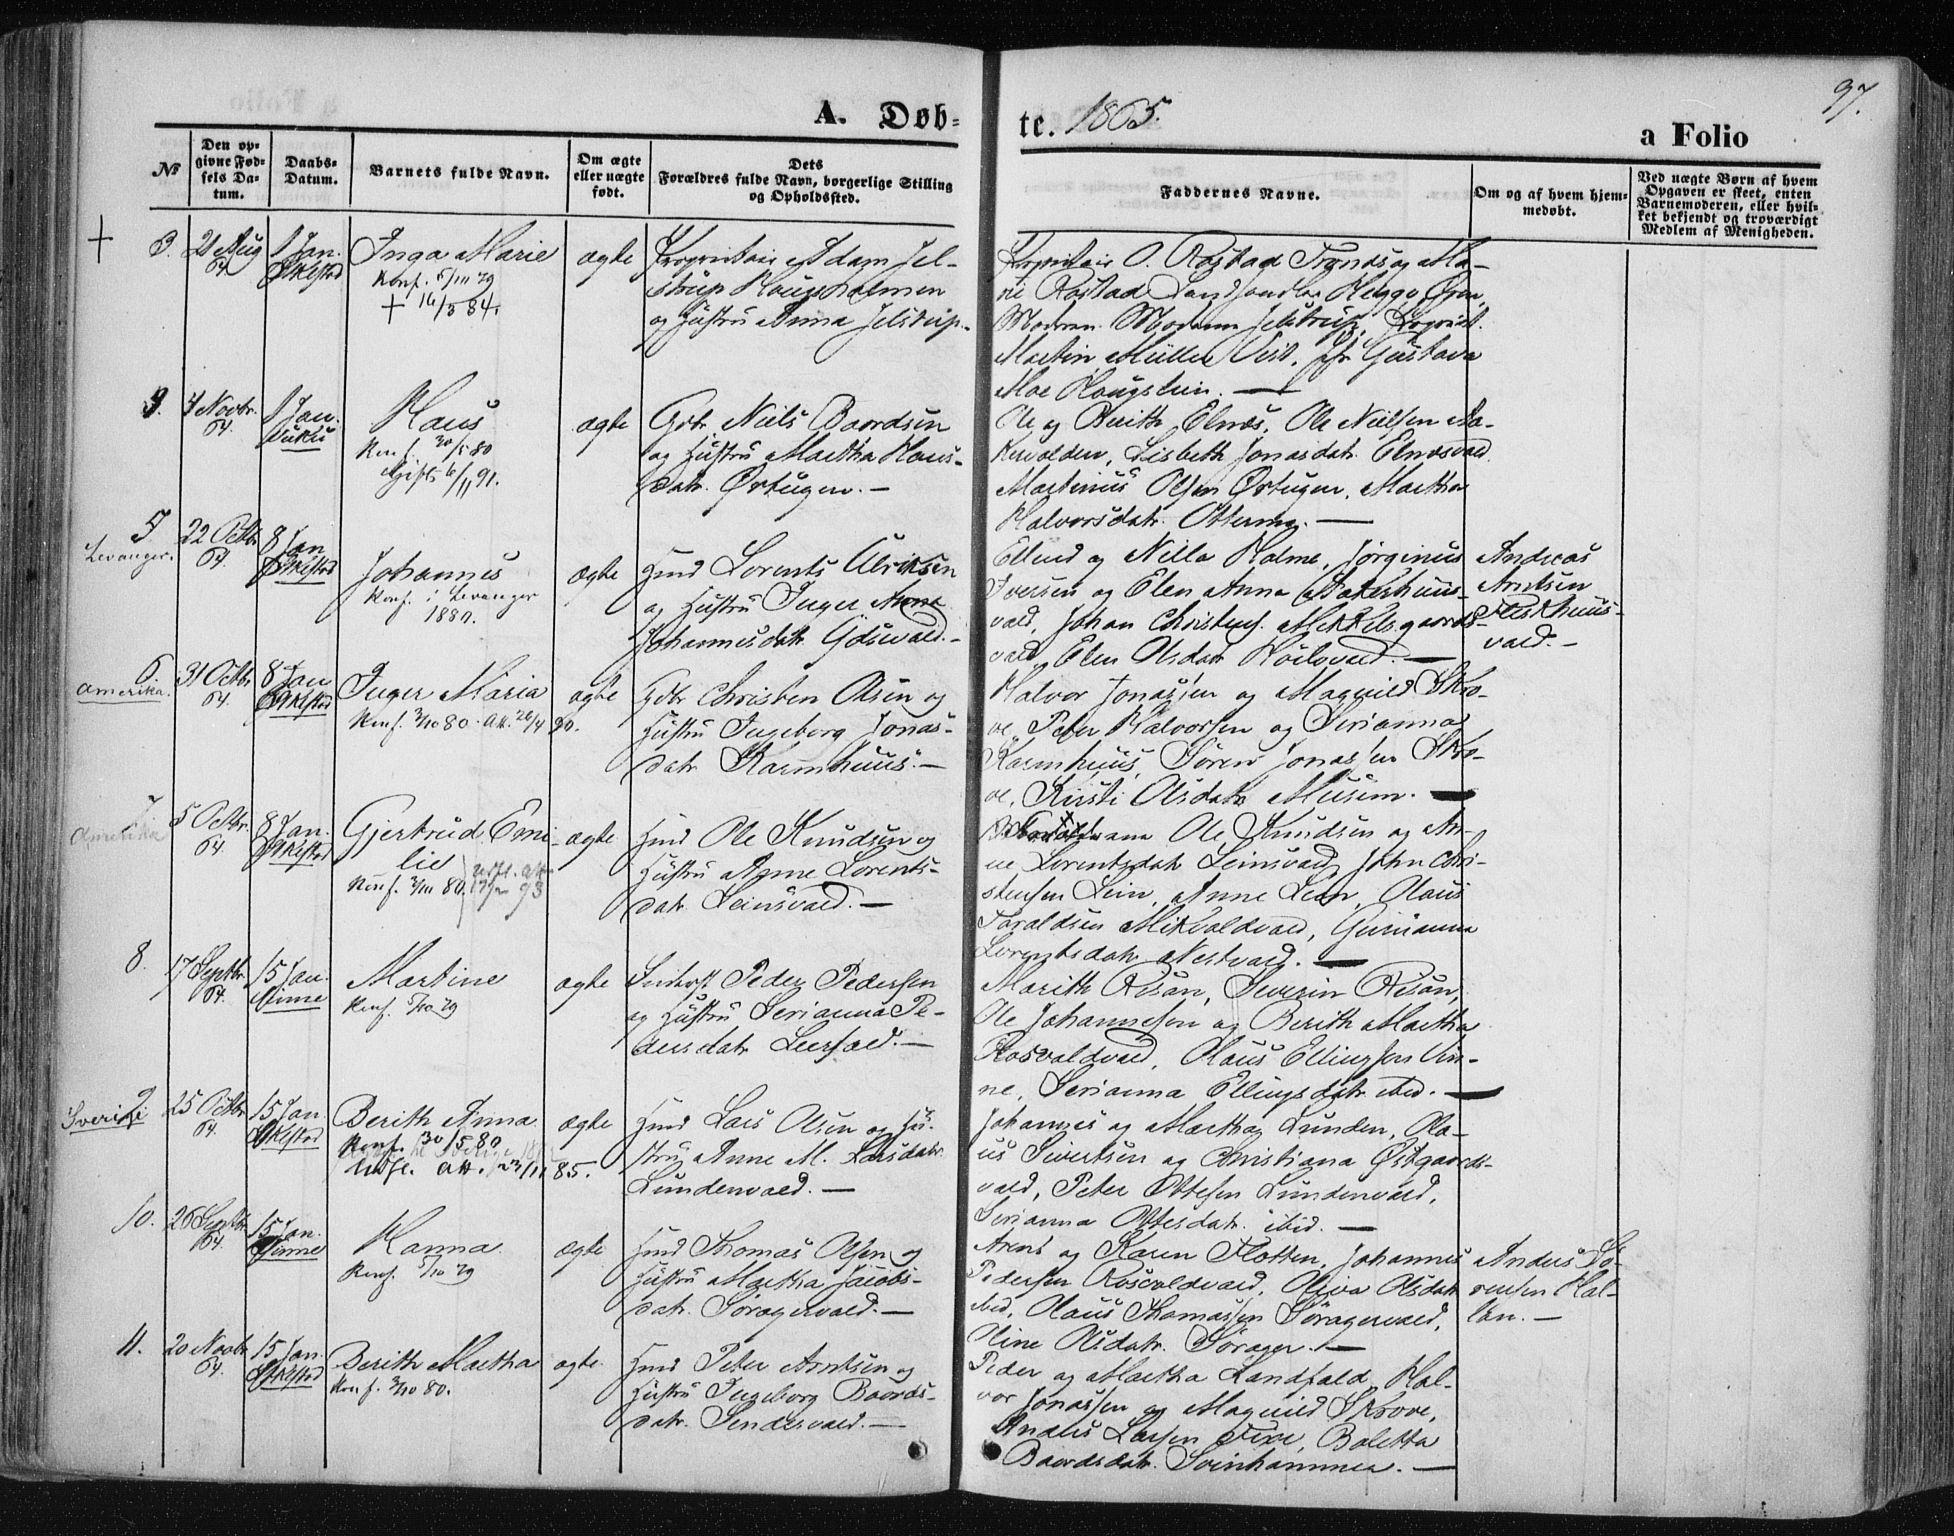 97.
A. Døb-
te. 1865.
a Folio
No
Den op-
givne Fød-
sels Da-
tum.
Daabs-
Datum.
Barnets fulde Navn.
Om ægte
eller uægte
født.
Dets
Forældres fulde Navn, borgerlige Stilling
og Opholdssted.
Faddernes Navne.
Om og af hvem hjem-
medøbt.
Ved uægte Børn af hvem
Opgaven er skeet, enten
Barnemoderen, eller hvil-
ket bekjendt og troværdigt
Medlem af Menigheden.
+ 3.
Aug
64
1 Jan.
Inga Marie
Konf. 5/10 79
+ 16/5 84.
ægte
Proprietair Adam Jel-
strup
og Hustru Anna Jelstrup.
Proprietair O. Rostad Tronds og Ma-
Rostad Landhandler
Moderen Madam Jelstrup,
Martin Müller Gustava
Moe
4 Novbr.
64.
1 Jan.
Hans
Konf. 30/5 80
Gift 6/11 91.
ægte
Gbr Niels Baardsen
og Hustru Martha Hans-
datr. Ørtugen.
Ole og Berith Elnæs, Ole Nielsen Aa-
kervolden, Lisbeth Jonasdatr. Elnæsvald
Martinus Olsen Ørtugen, Martha
Halvorsdatr.
5
Levanger.
22 Octbr.
64.
8 Jan
Johannes
Konf. i Levanger
1880.
ægte
Hmd Lorents Ulriksen
og Hustru Inger Anna
Johannesdatr
Ellend og Nilla Holme, Jørginus
Iversen og Elen Anna
vald, Johan Mikkelsgaards-
vald, Elen Olsdatr.
Andreas
Arntsen
vald.
6.
Amerika.
31 Octbr.
64.
8 Jan
Inger Maria
Konf. 3/10 80. Att. 26/4 90.
ægte
Gbr Christen Olsen og
Hustru Ingeborg Jonas-
datr. Karmhuus.
Halvor Jonassen og Magnild Skro-
ve, Peter Halvorsen og Serianna
Karmhuus, Søren Jonassen Skro-
ve, Kirsti Olsdatr
7
Amerika
5 Octbr.
64.
8 Jan.
Gjertrud Emi-
lie
Konf.
ægte
Hmd Ole Knudsen og
Hustru Anne Lorents-
datr. Leinsvald.
Ole Knudsen og An-
ne Lorentsdatr Leinsvald, John Chri-
stensen Lein, Anne Lein, Olaus
Taraldsen Mikvoldvald,
Lorentsdatr Nestvald.
8.
17 Septbr.
64.
15 Jan.
Vinne
Martine
Konf. 5/10 79
ægte
Inderst Peder Pedersen
og Hustru Serianna Pe-
dersdatr.
Marith Risan, Severin Risan,
Ole Johannesen og Berith Martha
Rosvoldvald, Olaus Ellingsen Vin-
ne, Serianna Ellingsdatr ibid.
9
Sverige
25 Octbr
64.
15 Jan.
Berith Anna
Konf. 30/5 80
Utfl. Att. 23/11 85.
ægte
Hmd Lars Olsen og Hu-
stru Anne M. Larsdatr.
Lundenvald.
Johannes og Martha Lunden, Ola-
us Sivertsen og Christiana Østgaards-
vald, Peter Ottesen Lundenvald,
Serianna Ottesdatr. ibid.
10.
26 Septbr.
64.
15 Jan.
Vinne
Hanna
Konf. 5/10 79
ægte
Hmd Thomas Olsen og
Hustru Martha Jacobs-
datr. Søragervald.
Arent og Karen Flotten, Johannes
Pedersen Rosvoldvald, Oliva Olsdatr
ibid, Olaus Thomassen Søragervald,
Oline Olsdatr. Sørager.
Anders Sø-
rensen Hal-
lan.
11.
20 Novbr
64.
15 Jan.
Berith Martha
Konf. 3/10 80.
ægte.
Hmd Peter Arntsen og
Hustru Ingeborg Baards-
datr. Sendesvald.
Peder og Martha Landfald, Hal-
vor Jonassen og Magnild Skrove,
Larsen Boletta
Baardsdatr. Svinhammer.